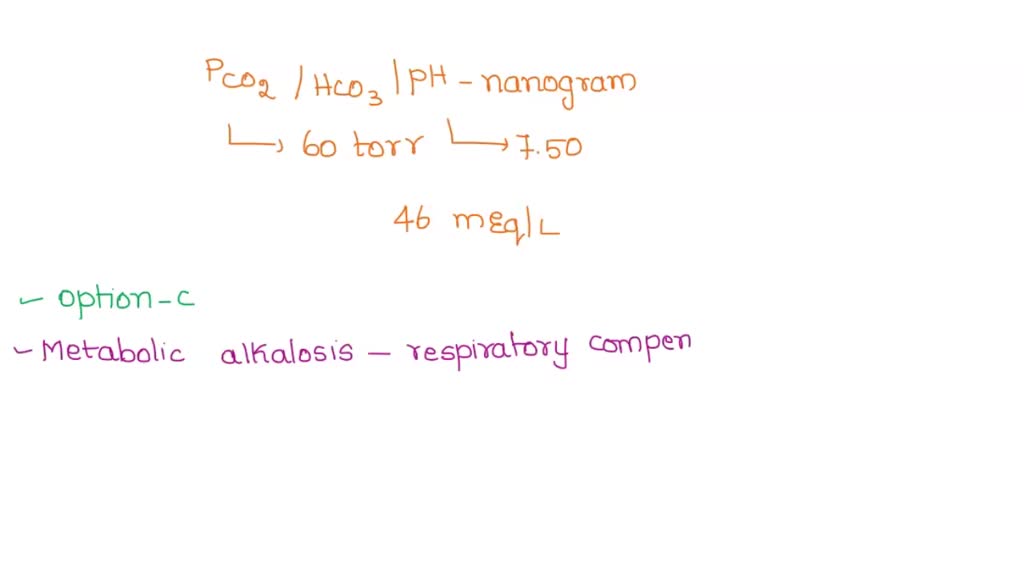 PCO2 / HCO3 | PH - nanogram
60 torr 7.50
46 mEq/L
option-c
Metabolic alkalosis - respiratory compen